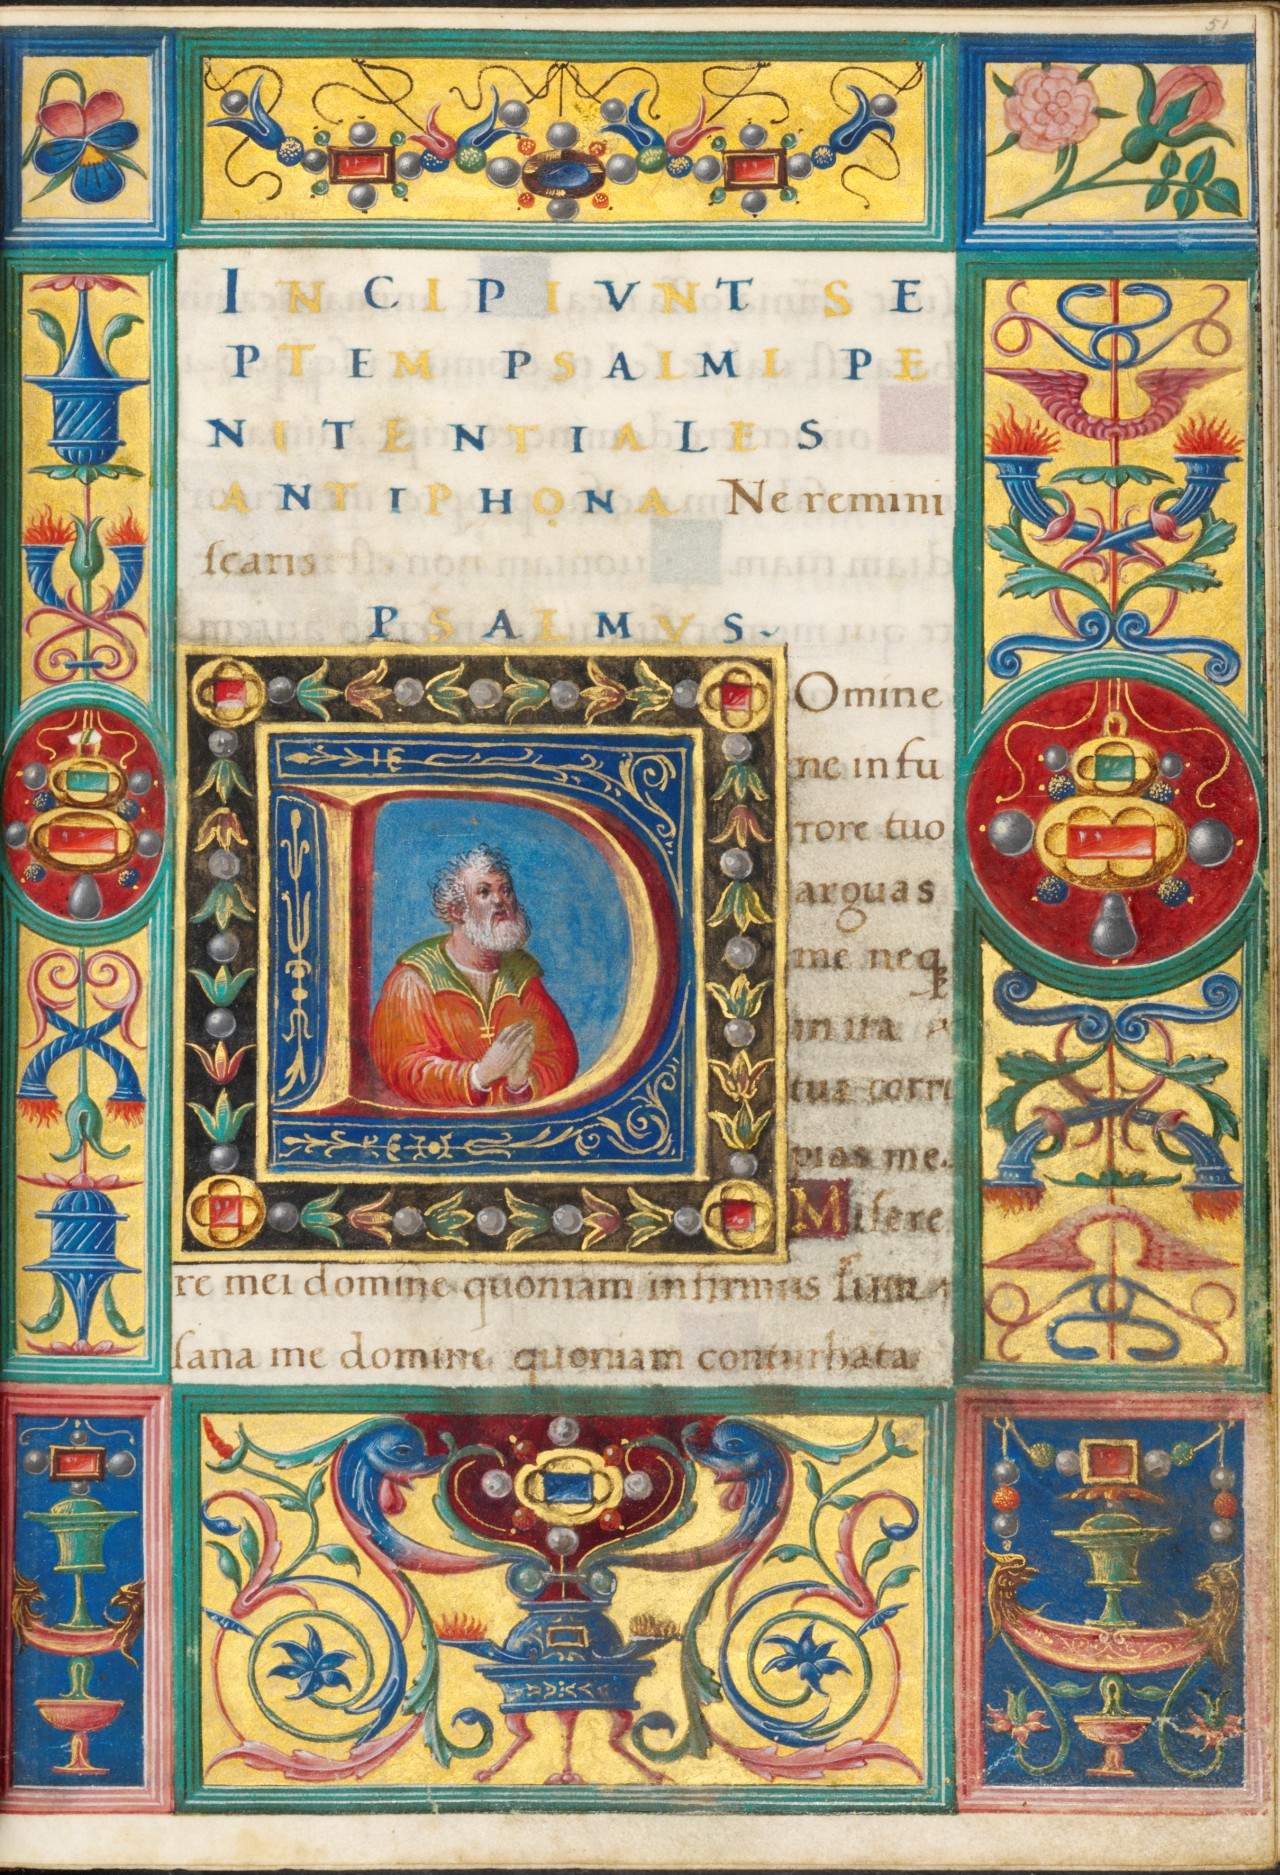 51
INCIPIVNT SE
PTEM PSALMI PE
NITENTIALES
ANTIPHONA Ne remini
scaris
PSALMVS
D Omine
ne in fu
rore tuo
arguas
me neq
in ira
tua corri
pias me.
Misere
re mei domine quoniam infirmus sum
sana me domine quoniam conturbata